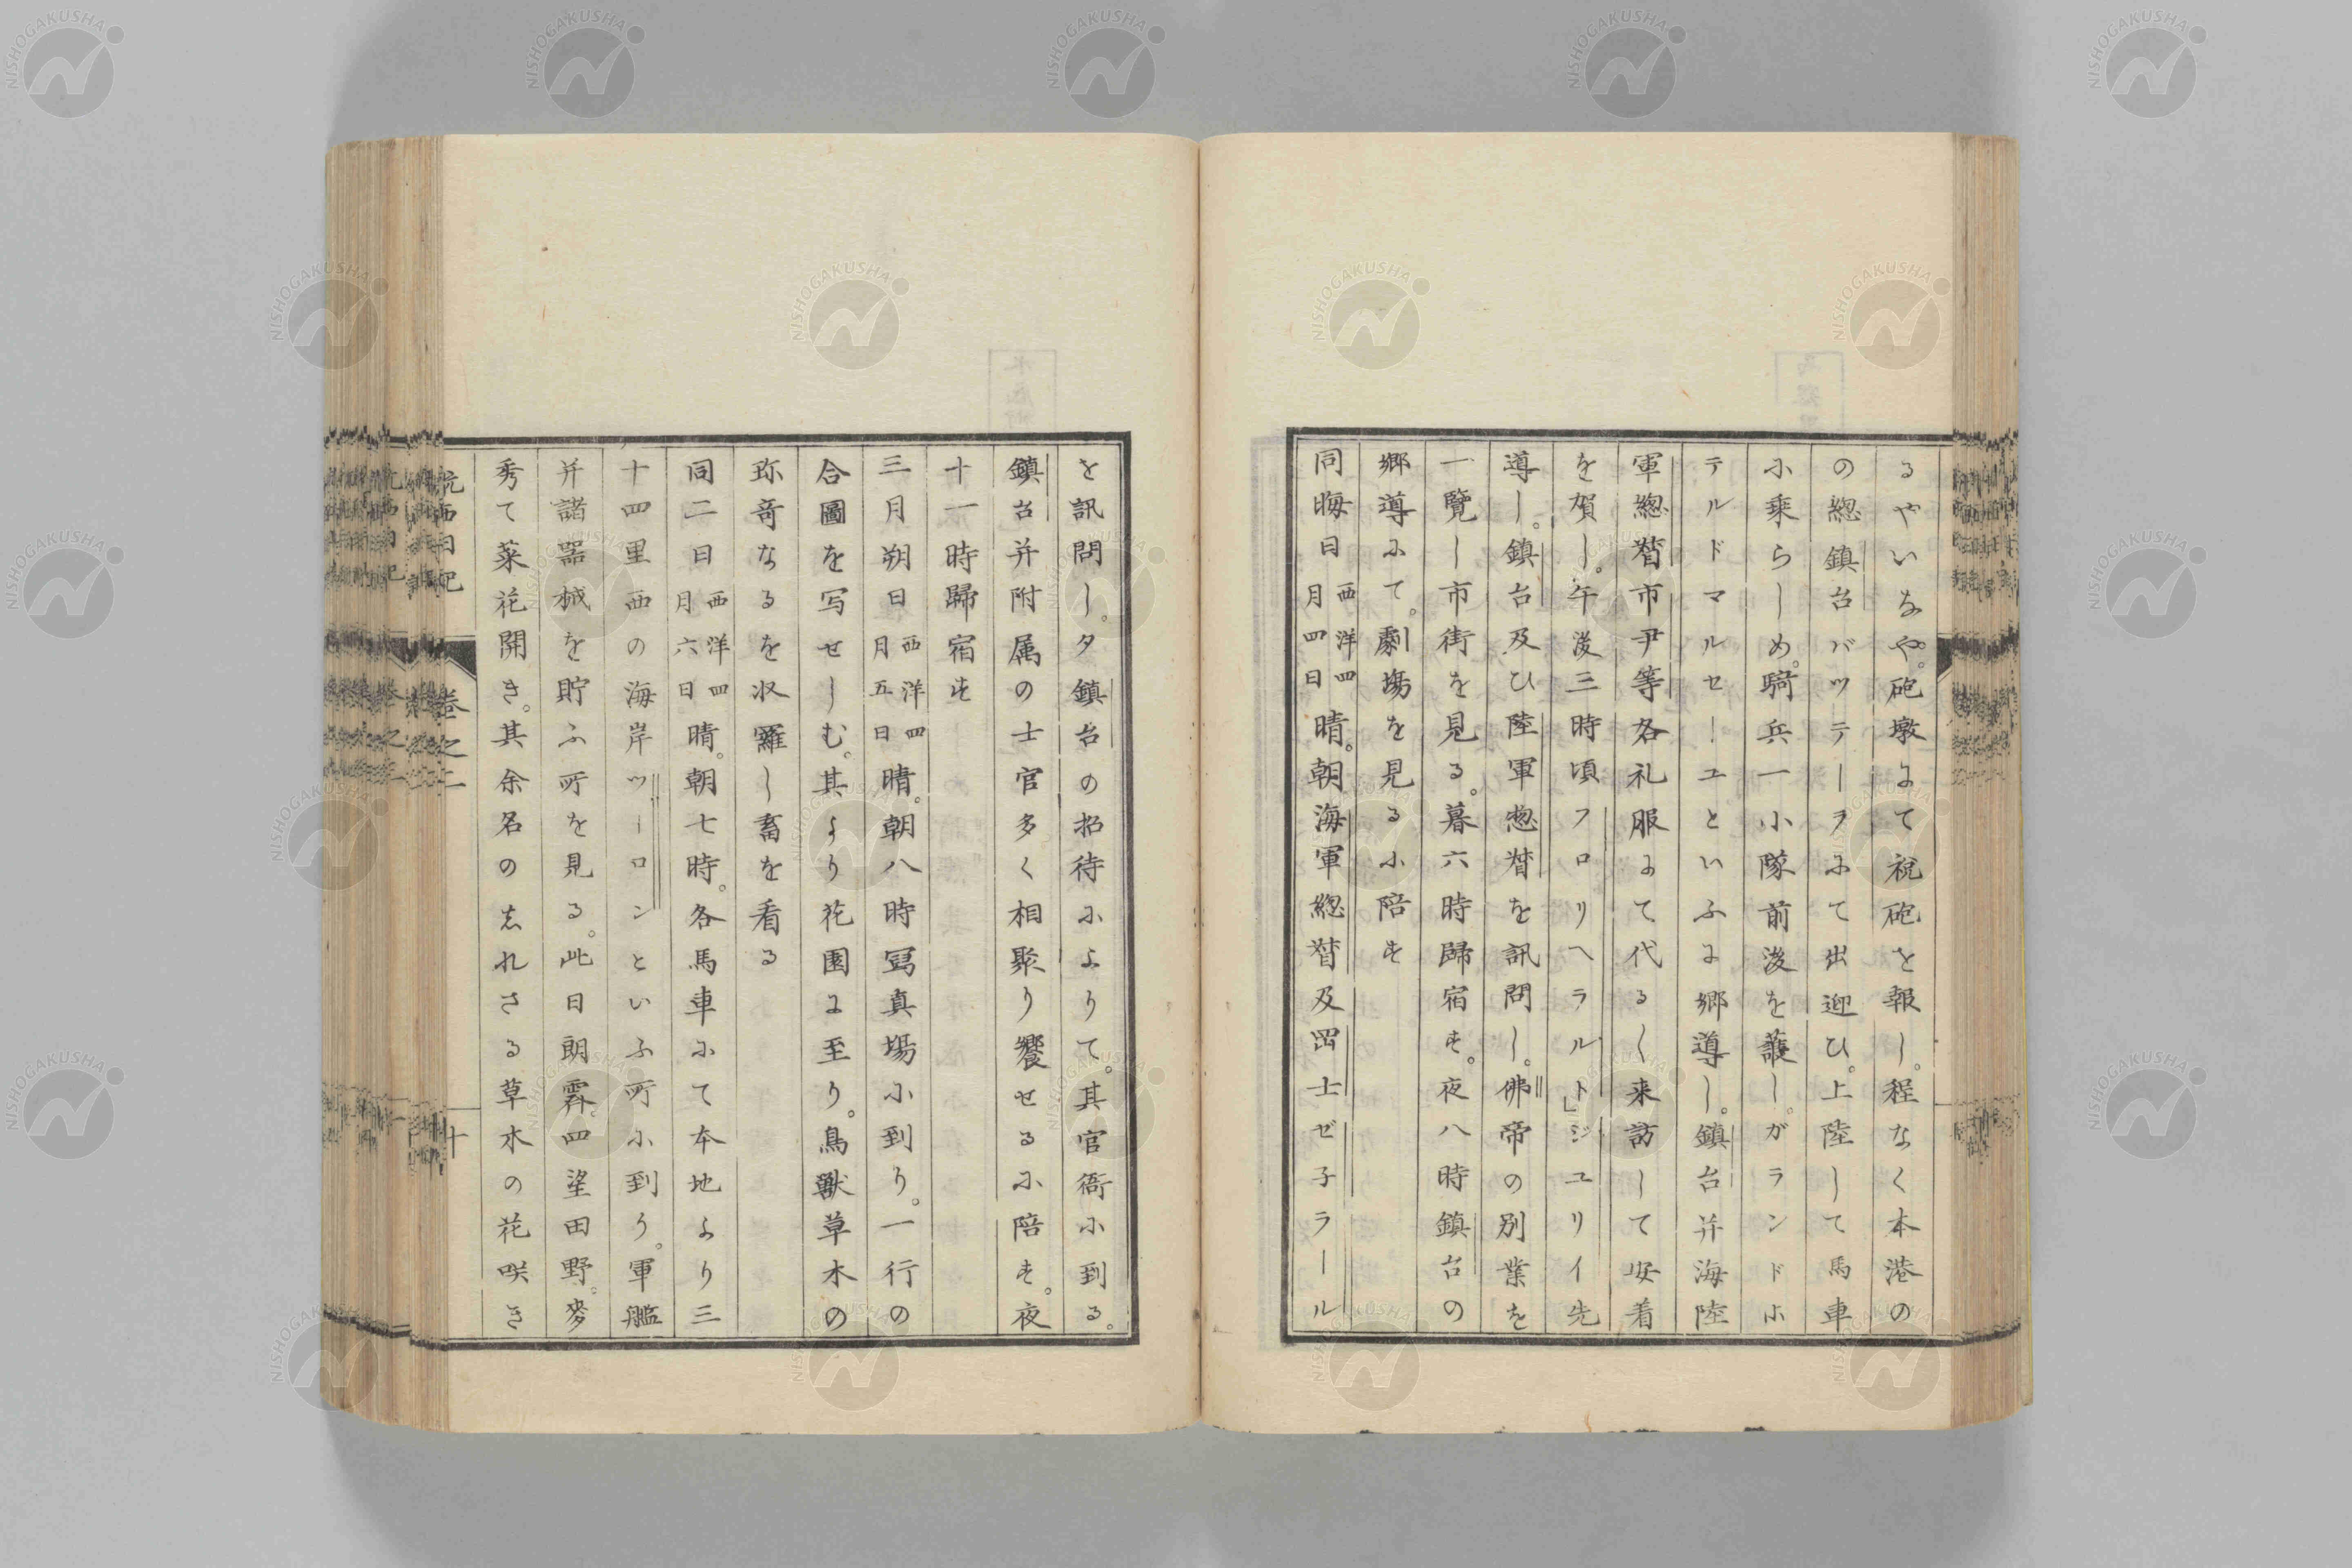 るやいなや。砲墩にて祝砲を報し。程なく本港の
の總鎮台バッテーラにて出迎ひ。上陸して馬車
に乗らしめ。騎兵一小隊前後を護し。ガランドホ
テルドマルセーユといふに郷導し。鎮台并海陸
軍總督市尹等各礼服にて代る〱来訪して安着
を賀し。午後三時頃フロリヘラルト」ジユリイ先
導し。鎮台及ひ陸軍惣督を訊問し。佛帝の別業を
一覽し市街を見る。暮六時歸宿す。夜八時鎮台の
郷導にて。劇場を見るに陪す
同晦日西洋四月四日晴。朝海軍總督及岡士ゼ子ラール
を訊問し。夕鎮台の招待によりて。其官衙に到る。
鎮台并附属の士官多く相聚り饗せるに陪す。夜
十一時歸宿す
三月朔日西洋四月五日晴。朝八時冩真場に到り。一行の
合圖を写せしむ。其より花園に至り。鳥獸草木の
珎竒なるを収羅し畜を看る
同二日西洋四月六日晴。朝七時。各馬車にて本地より三
十四里西の海岸ツーロンといふ所に到り。軍艦
并諸器械を貯ふ所を見る。此日朗霽。四望田野。麥
秀て菜花開き。其余名のしれさる草木の花咲き
航西日記
巻之二
十
NISHOGAKUSHA